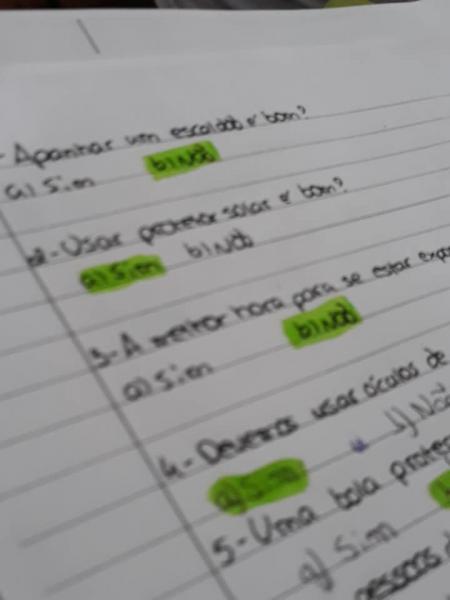 - Apanhar um escaldão é bom?
a) Sim b) Não
2- Usar protetor solar é bom?
a) Sim b) Não
3- A melhor hora para se estar
a) Sim b) Não
4- Devemos usar óculos de
a) Sim b) Não
5- Uma bola
a) Sim
pessoas